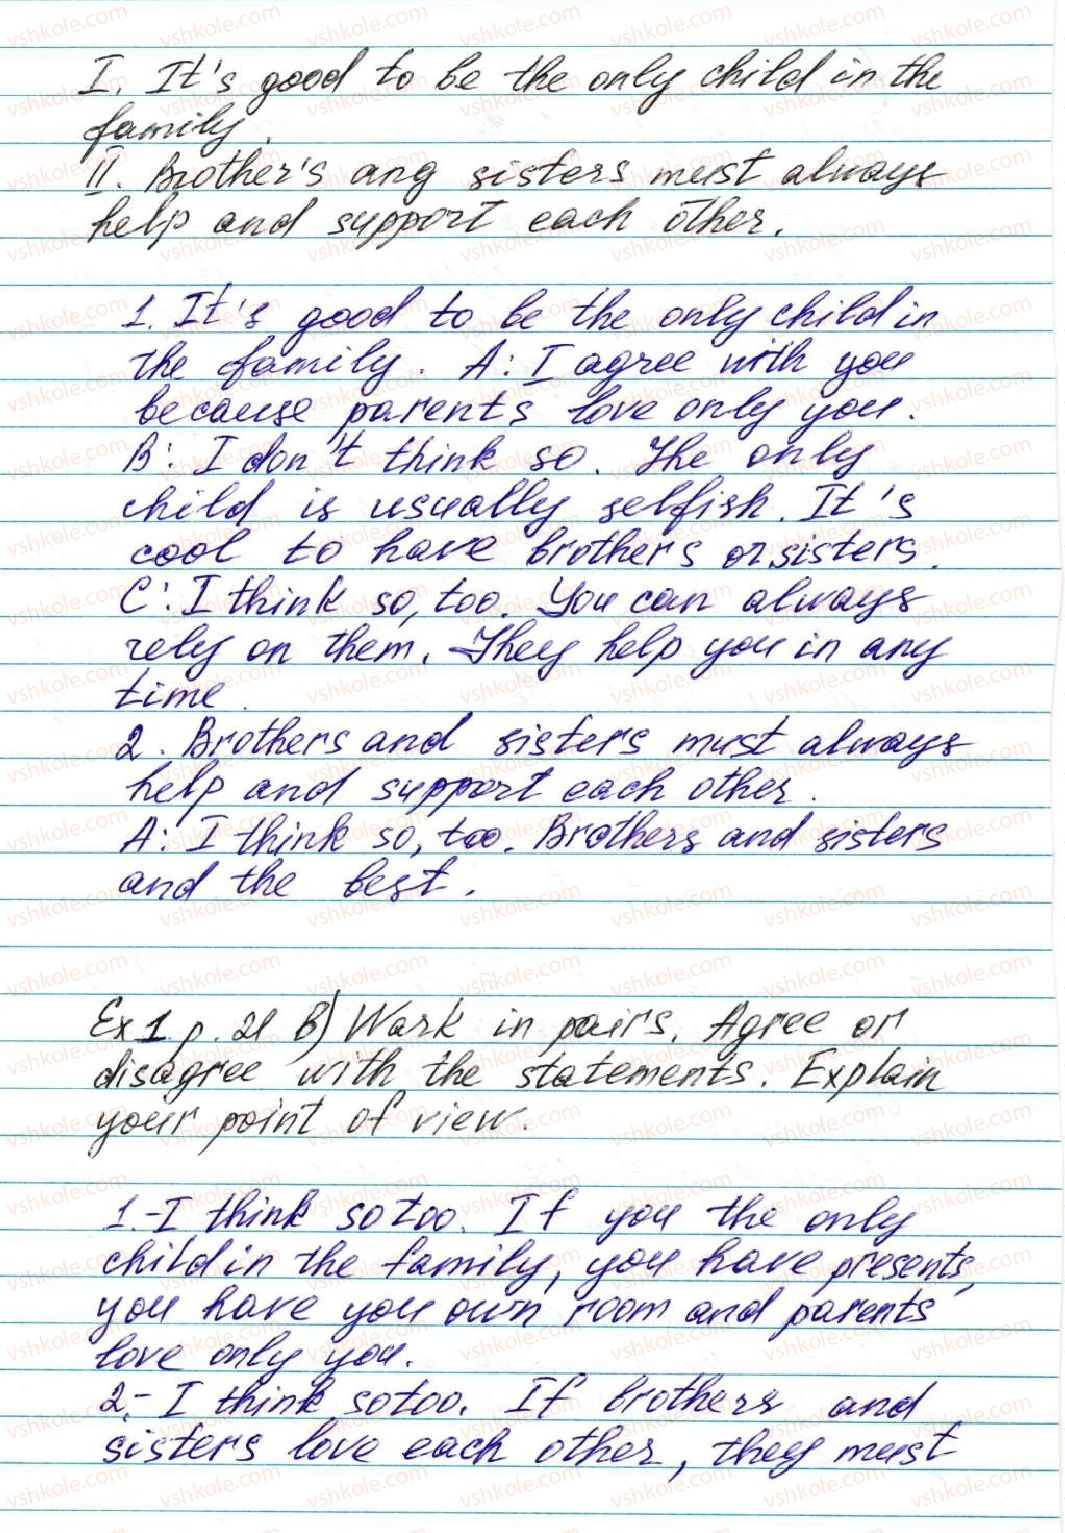 I. It's good to be the only child in the
family.
II. Brother's ang sisters must always
help and support each other.
1. It's good to be the only child in
the family. A: I agree with you
because parents love only you.
B: I don't think so. The only
child is usually selfish. It's
cool to have brothers or sisters.
C: I think so, too. You can always
rely on them. They help you in any
time.
2. Brothers and sisters must always
help and support each other.
A: I think so, too. Brothers and sisters
and the best.
Ex 1 p. 21 B) Work in pairs. Agree or
disagree with the statements. Explain
your point of view.
1.-I think so too. If you the only
child in the family, you have presents,
you have you own room and parents
love only you.
2.- I think so too. If brothers and
sisters love each other, they must
vshkole.com